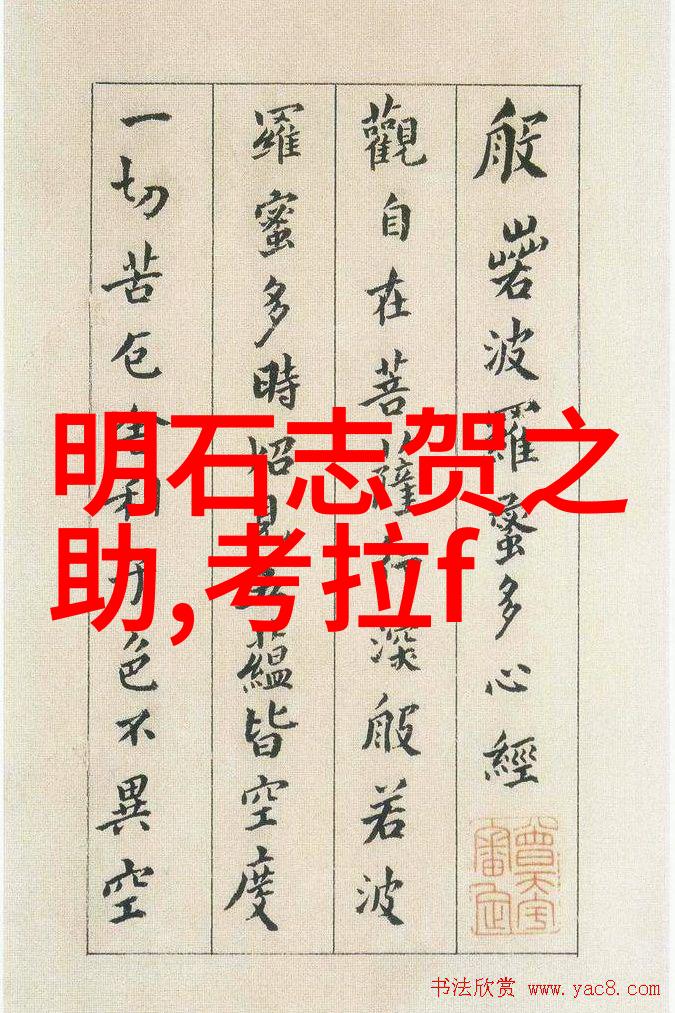 般若波羅蜜多心經
觀自在菩薩行深般若波
羅蜜多時照見五蘊皆空度
一切苦厄舍利子色不異空
明石志贺之
助,考拉f
书法欣赏 www.yac8.com